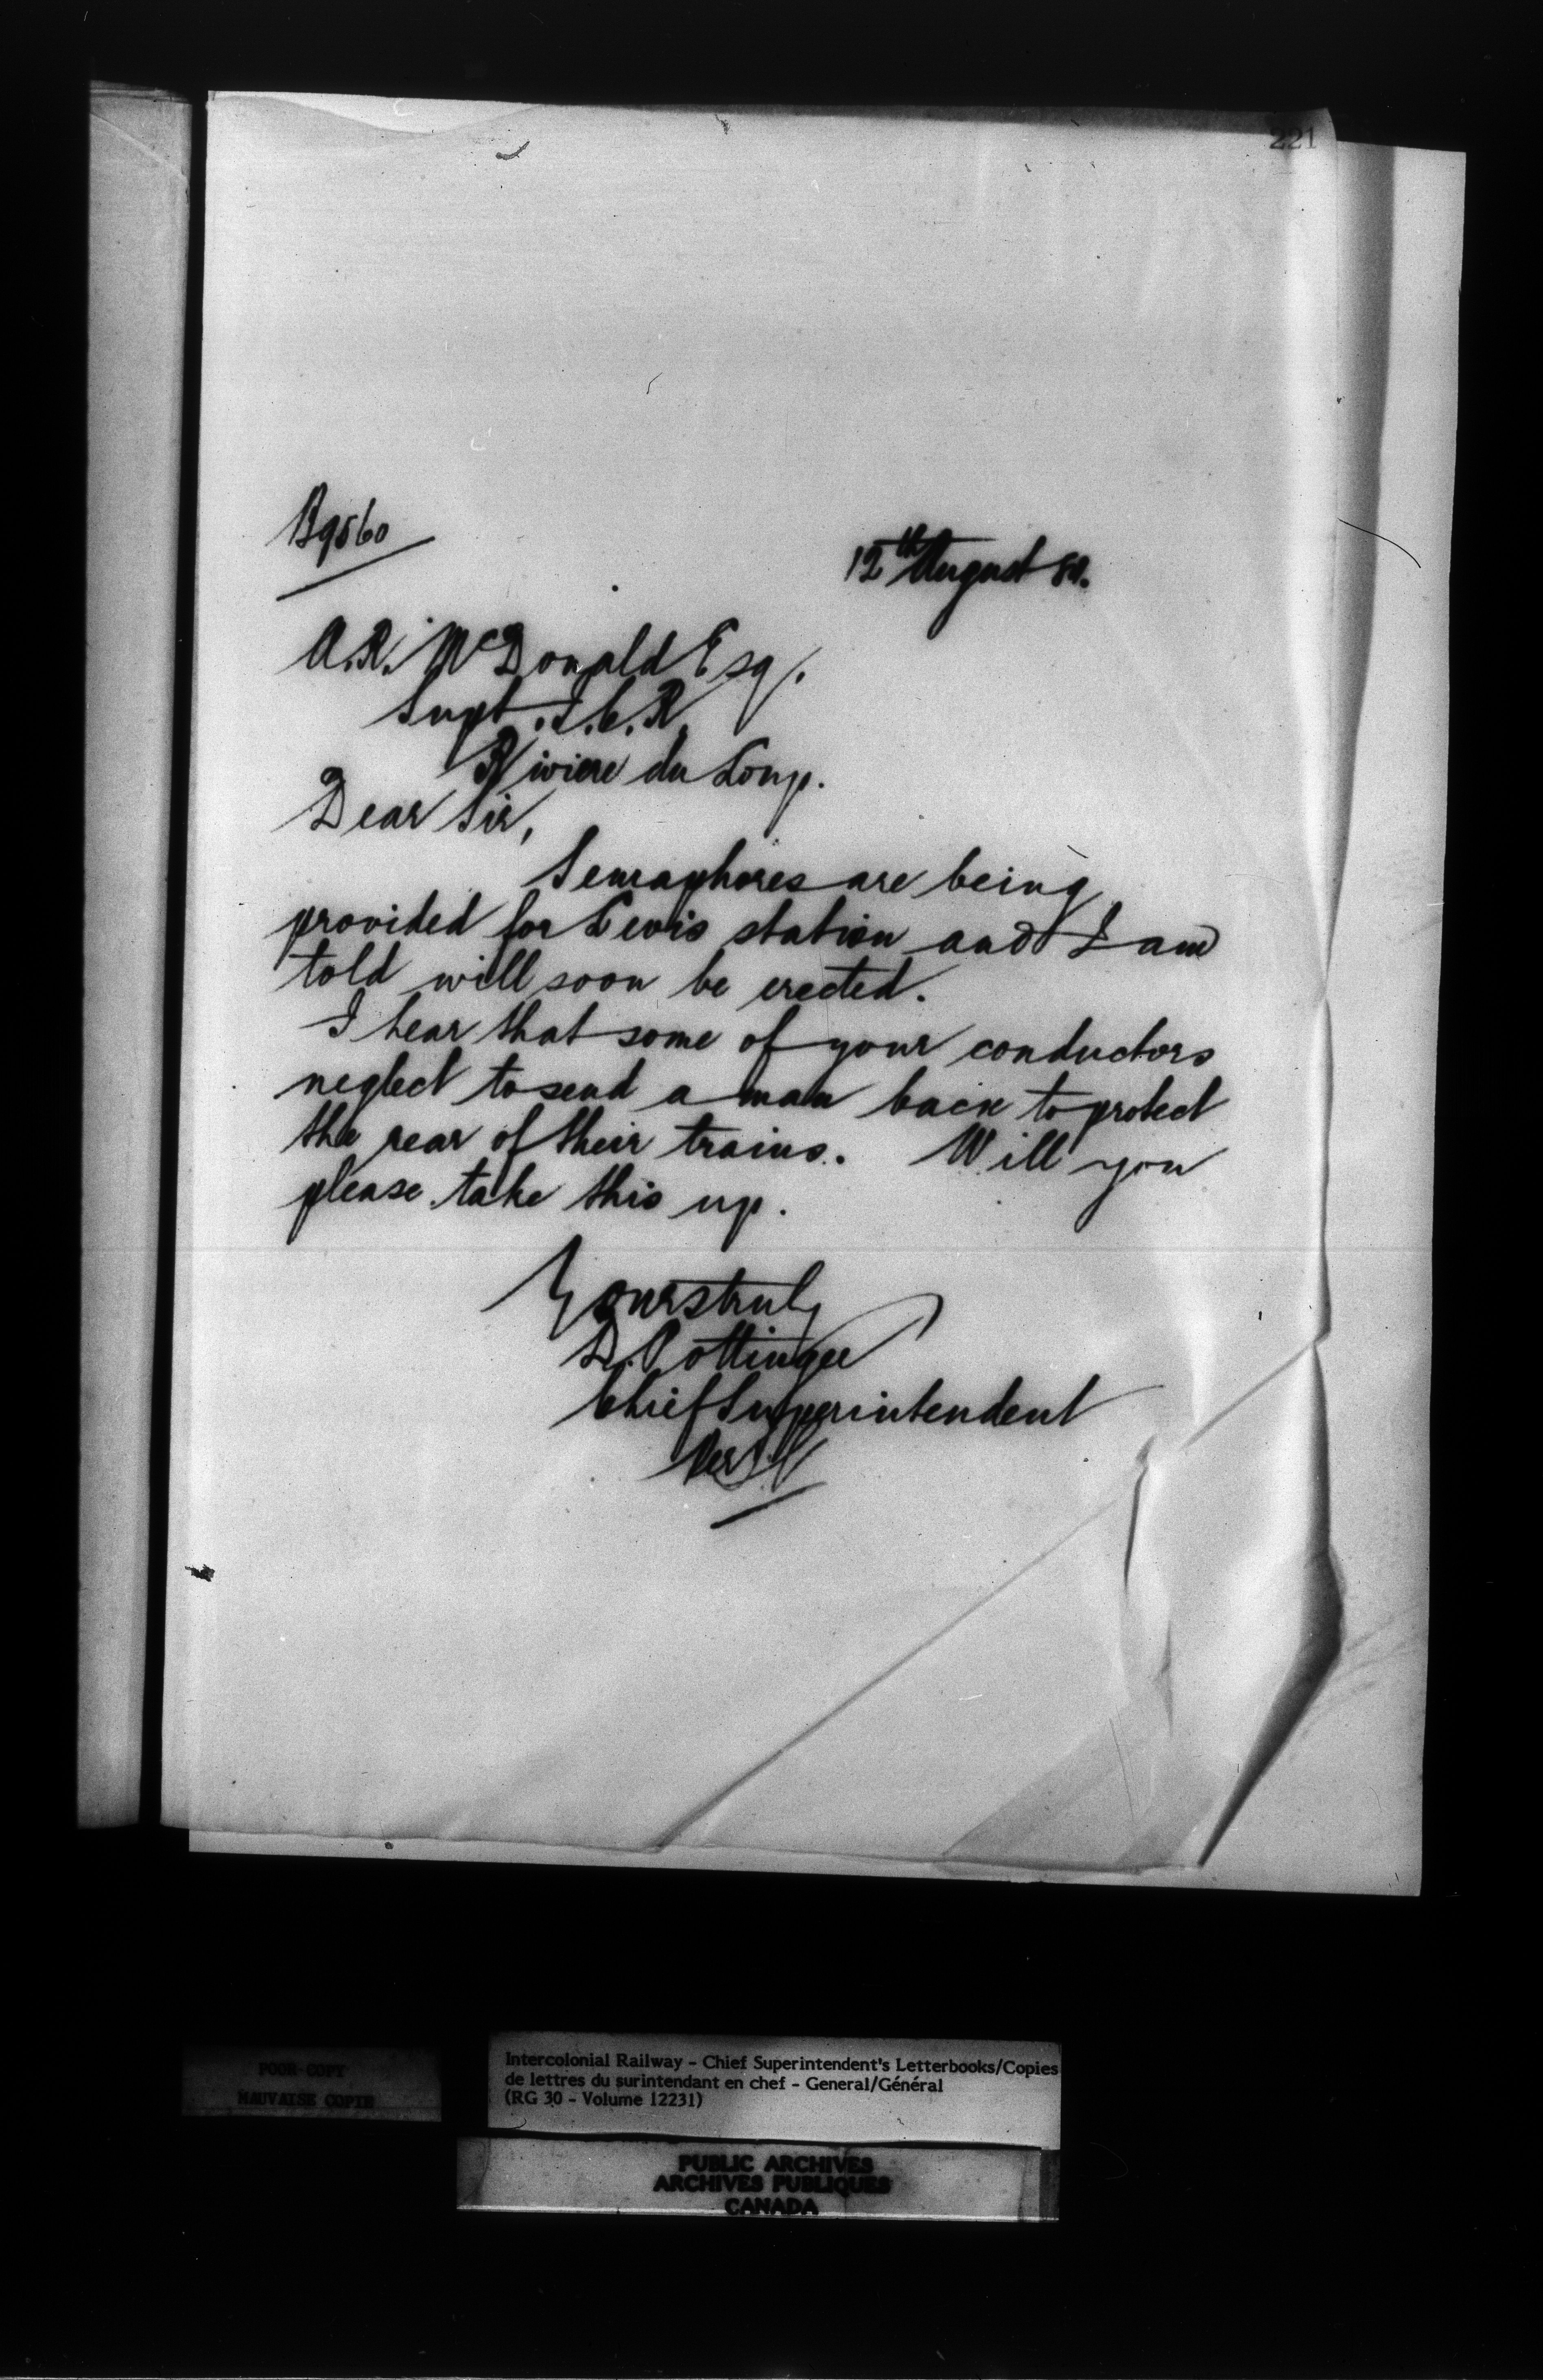 221
B9560
12th August 80.
A.R. McDonald Esq.
Supt. I.C.R.
Riviere du Loup.
Dear Sir,
Semaphores are being
provided for Levis station and I am
told will soon be erected.
I hear that some of your conductors
neglect to send a man back to protect
the rear of their trains. Will you
please take this up.
Yours truly
D. Pottinger
Chief Superintendent
Per
POOR COPY
MAUVAISE COPIE
Intercolonial Railway - Chief Superintendent's Letterbooks/Copies
de lettres du surintendant en chef - General/Général
(RG 30 - Volume 12231)
PUBLIC ARCHIVES
ARCHIVES PUBLIQUES
CANADA